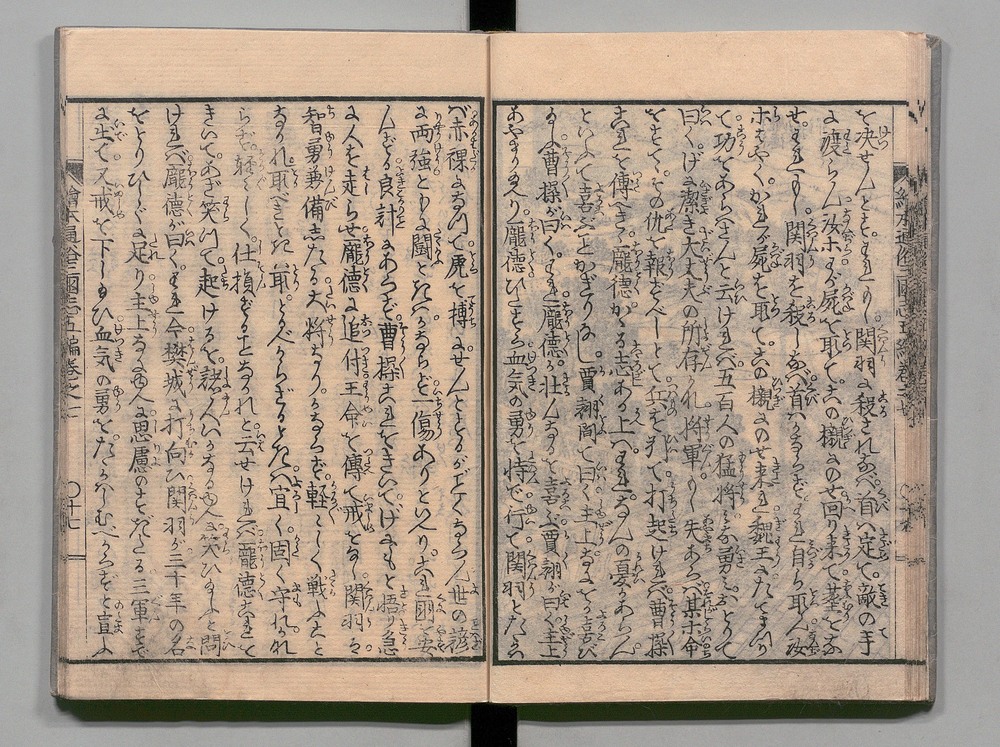 を決せんとす。われもし関羽に殺されなば。首は定て敵の手
に渡らん。汝ホわが屍を取て。この櫬にのせ回り来て。墓をなせ。
われもし。関羽を殺しなば。首はかならず。われ自ら取ん。汝
ホはやくかれが屍を取て。この櫬にのせ来れ。魏王にたてまつり
て。功をあらはさんと云ければ。五百人の猛将みな勇んで
曰く。潔き大丈夫の所存かな。将軍もし失あらば。某ホ命
をすて。その仇を報ずべしとて。兵をすゝめて打起ければ。曹操
これを傳へきゝ。龐徳かゝる志ある上は。われなんの憂かあらん
といふて。喜ぶことかぎりなし。賈詡問て曰く。主上なにをか喜び
曹操が曰く。われ龐徳が壮んなるを喜ぶ。賈詡が曰く。主上
あやまりたまへり。龐徳ひとへに血気の勇を恃で。行て関羽とたゝかへ
ば。赤裸になつて。虎を搏にせんとするがごとくならん。世の諺
に両強ともに闘ときは。かならず一傷ありといへり。これ国の安
んずる良計にあらず。曹操これをきいて。げにもと悟り。急
に人を走らせ。龐徳に追付。王命を傳て。戒をなす。関羽は
智勇兼備したる大将なり。かならず軽〻しく戦ふこと
なかれ。取べきときは取。とるべからざるときは。宜く固く守れ。かな
らず軽〻しく。仕損ずることなかれと云せければ。龐徳これを
きいて。あざ笑つて起けるを。諸人いかなるゆへに笑ひたまふと問
ければ。龐徳が曰く。われ今樊城に打向ひ。関羽が三十年の名
をとりひしぐに足り。主上なにゆへに思慮のすぎたる。三軍すでに
に出て。又戒を下したまひ。血気の勇をたゝかはしむべからずと宣ふ
繪本通俗三國志五編巻之七
繪本通俗三國志五編巻之七
〇十七